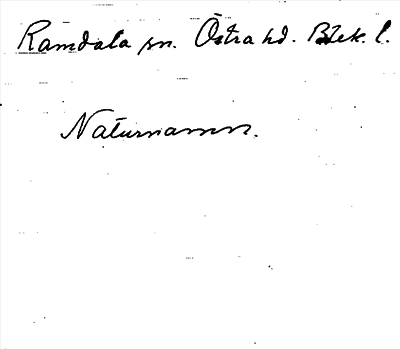 Ramdala sn. Östra hd. Blek. l.
Naturnamn.